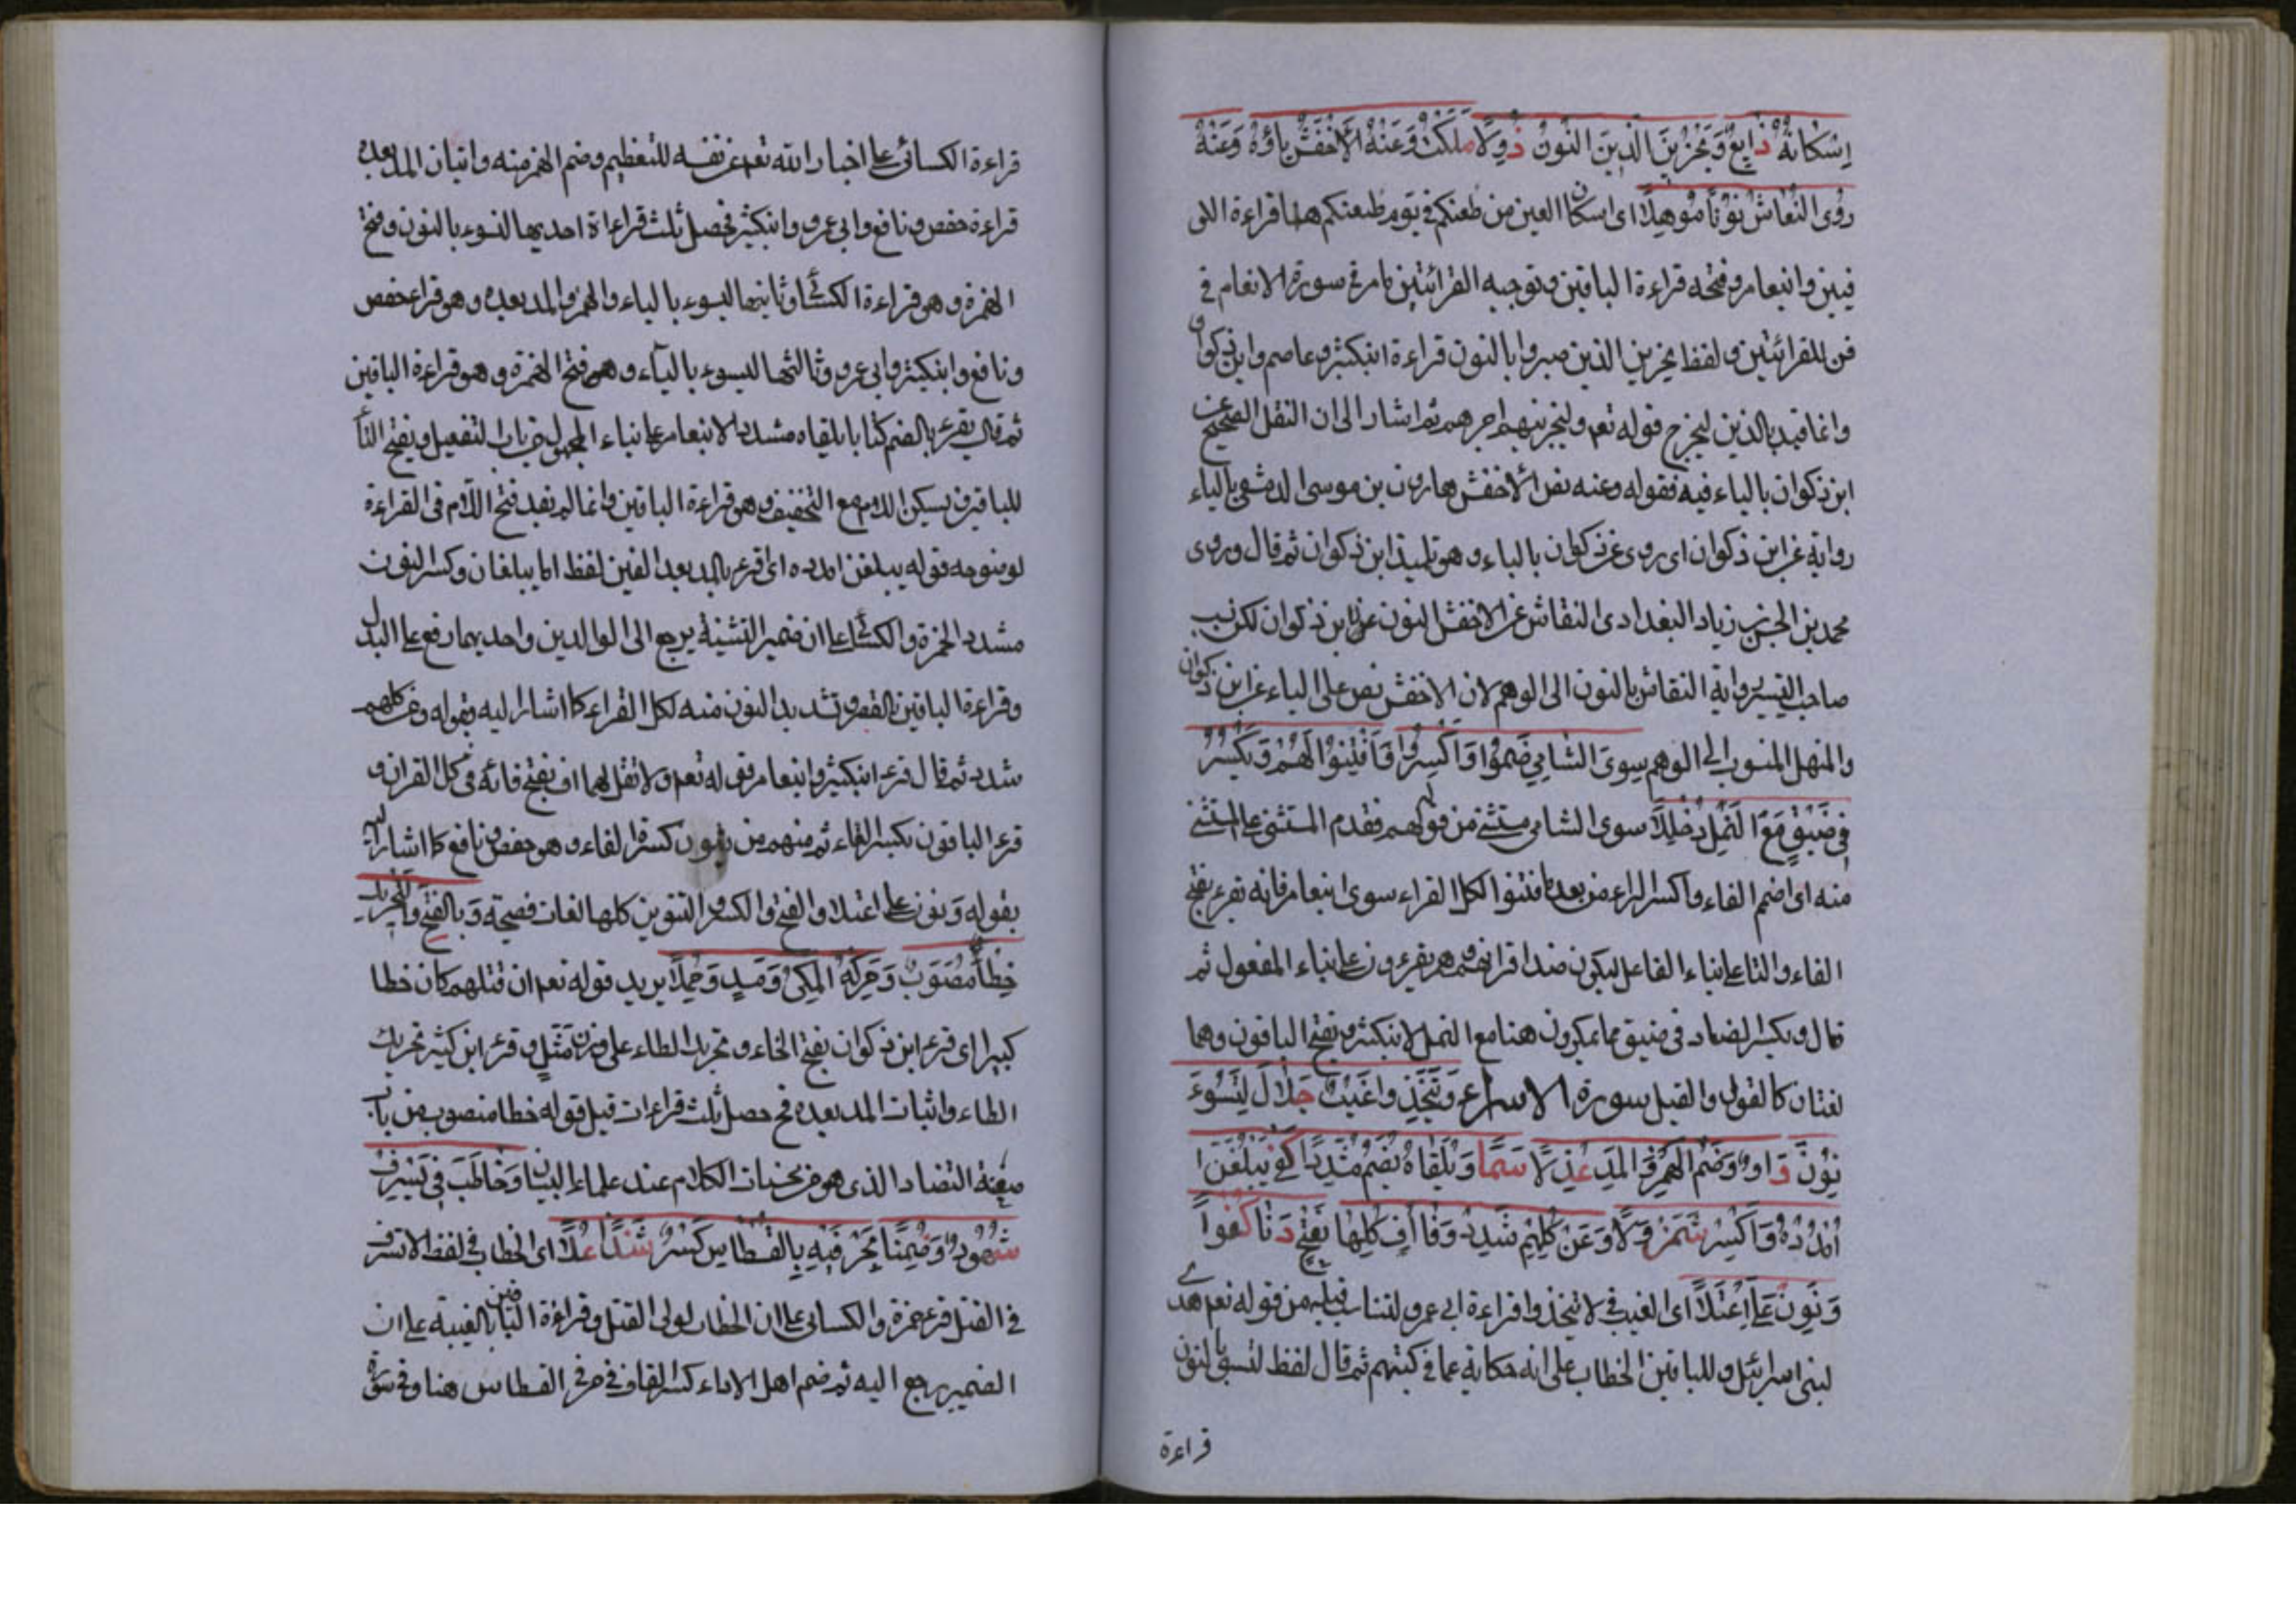 اِسْكَانُهُ ذَايِعٌ وَنَجْزِيَنَّ الَّذِينَ النُّونُ ذُو وِلَا مَلَكْتُ وَعَنْهُ الْاَخْفَشُ يَاؤُهُ وَعَنْهُ
رَوَى النَّقَّاشُ نُونًا مُوهِلًا اى اسكان العين من ظعنكم فى يوم ظعنكم هنا قراءة اللى
فيهن وابنعامر وفتحه قراءة الباقين وتوجيه القرائتين مامر فى سورة الانعام فى
فن للقرائتين ولفظ يجزين الذين صبروا بالنون قراءة ابنكثير وعاصم وابن ذكوان
وانما قيد بالذين ليخرج قوله تعم ولنجزينهم اجرهم ثم اشار الى ان النقل الصحيح عن
ابن ذكوان بالياء فيه فقوله وعنه نص الاخفش هارون بن موسى الدمشقى بالياء
رواية عن ابن ذكوان اى روى عن ذكوان بالياء وهو تلميذ ابن ذكوان ثم قال وروى
محمد بن الحسن بن زياد البغدادى النقاش عن الاخفش النون عن ابن ذكوان لكن نسب
صاحب التيسير رواية النقاش بالنون الى الوهم لان الاخفش نص على الياء عن ابن ذكوان
والمنهل المنسوب الى الوهم سِوَى الشَّامِي ضُمُّوا وَاكْسِرُوا فَافْتِنُوا لَهُمْ وَيُكْسَرُ
فِى ضَيْقٍ مَعَ النَّمْلِ دُخْلُلًا سوى الشامى مستثنى من قولهم فقدم المستثنى على المستثنى
منه اى اضم الفاء واكسر الراء من بعد ما فتنوا لكل القراء سوى ابنعامر فانه تقرء بفتح
الفاء والتا على بناء الفاعل ليكون ضدا قرانهم وهم يقرءون على بناء المفعول ثم
قال ويكسر الضاد فى ضيق مما يمكرون هنا مع النمل لابنكثير وبفتح الباقون وهما
لغتان كالقول والقيل سورة الاسراء وَيَتَّخِذُوا غَيْبٌ حَلَا لَ لِيَسُوءَ
نُونٌ رَاوٍ وَضَمُّ الْهَمْزِ وَالْمَدِّ عُدِّلَا سَمَا وَيُلَقَّاهُ يُضَمُّ مُشَدَّدًا كَفَى يَبْلُغَنَّ ا
امْدُدْهُ وَاكْسِرْ شَمَرْدَلَا وَعَنْ كُلِّهِمْ شَدِّدْ وَفَا اُفِّ كُلِّهَا بِفَتْحٍ دَنَا كُفْوًا
وَنَوِّنْ عَلَى اعْتِلَا اى الغيب فى لا يتخذوا قراءة ابى عمرو لتناسب قبله من قوله تعم هدى
لبنى اسرائيل وللباقين الخطاب على انه حكاية عما فى كتبهم ثم قال لفظ لنسوء بالنون
قراءة
قراءة الكسائى على اخبار الله تعم عن نفسه للتعظيم وضم الهمز منه واتيان المد بعده
قراءة حفص ونافع وابى عمرو وابنكثير فحصل ثلث قراءاة احديها لنسوء بالنون وفتح
الهمزة وهو قراءة الكسائى وثانيها ليسوء بالياء والهمز والمد بعده وهو قراء حفص
ونافع وابنكثير وابى عمرو وثالثها ليسوء بالياء وهو فتح الهمزة وهو قراءة الباقين
ثم قال يقرء بالضم كتابا يلقاه مشدد لابنعامر على بناء المجهول من باب التفعيل وبفتح الياء
للباقين بسكن اللام مع التخفيف وهو قراءة الباقين وانما لم يفيد فتح اللام فى القراءة
لوضوحه قوله يبلغن امدده اى اقرء بالمد بعد الغين لفظ اما يبلغان وكسر النون
مشدد لحمزة والكسائى على ان ضمير التثنية يرجع الى الوالدين واحديهما رفع على البدل
وقراءة الباقين بالقصر وتشديد النون منه لكل القراء كما اشار اليه بقوله وعن كلهم
شدد ثم قال قرء ابنكثير وابنعامر قوله تعم ولا تقل لهما اف بفتح فائه فى كل القران و
قرء الباقون بكسر الفاء ثم منهم من ينون كسرة الفاء وهو حفص ونافع كما اشار اليه
بقوله وَنَوِّن على اعتلا والفتح والكسر والتنوين كلها لغات فصيحة وَبِالْفَتْحِ وَالتَّحْرِيكِ
خِطْأً مُصَوَّبٌ وَحَرَّكَهُ الْمَكِّى وَمَدَّ وَجَمَّلَا يريد قوله تعم ان قتلهم كان خطا
كبيرا اى قرء ابن ذكوان بفتح الخاء وتحريك الطاء على وزن مَثَلٍ وقرء ابن كثير تحريك
الطاء واثبات المد بعده فح حصل ثلث قراءات قيل قوله خطا منصوب من باب
صنعة التضاد الذى هو من محسنات الكلام عند علماء البيان وَخَاطَبَ فِى يُسْرِفْ
شُهُودٌ وَضَمُّنَا بِحَرْفَيْهِ بِالْقِسْطَاسِ كَسْرُ شَذًا عَلَا اى الخطاب فى لفظ لا تسرف
فى القتل قرء حمزة والكسائى على ان الخطاب لولى القتل وقراءة الباقين بالغيبة على ان
الضمير يرجع اليه ثم ضم اهل الاداء كسر القاف فى حرفى القسطاس هنا وفى سورة